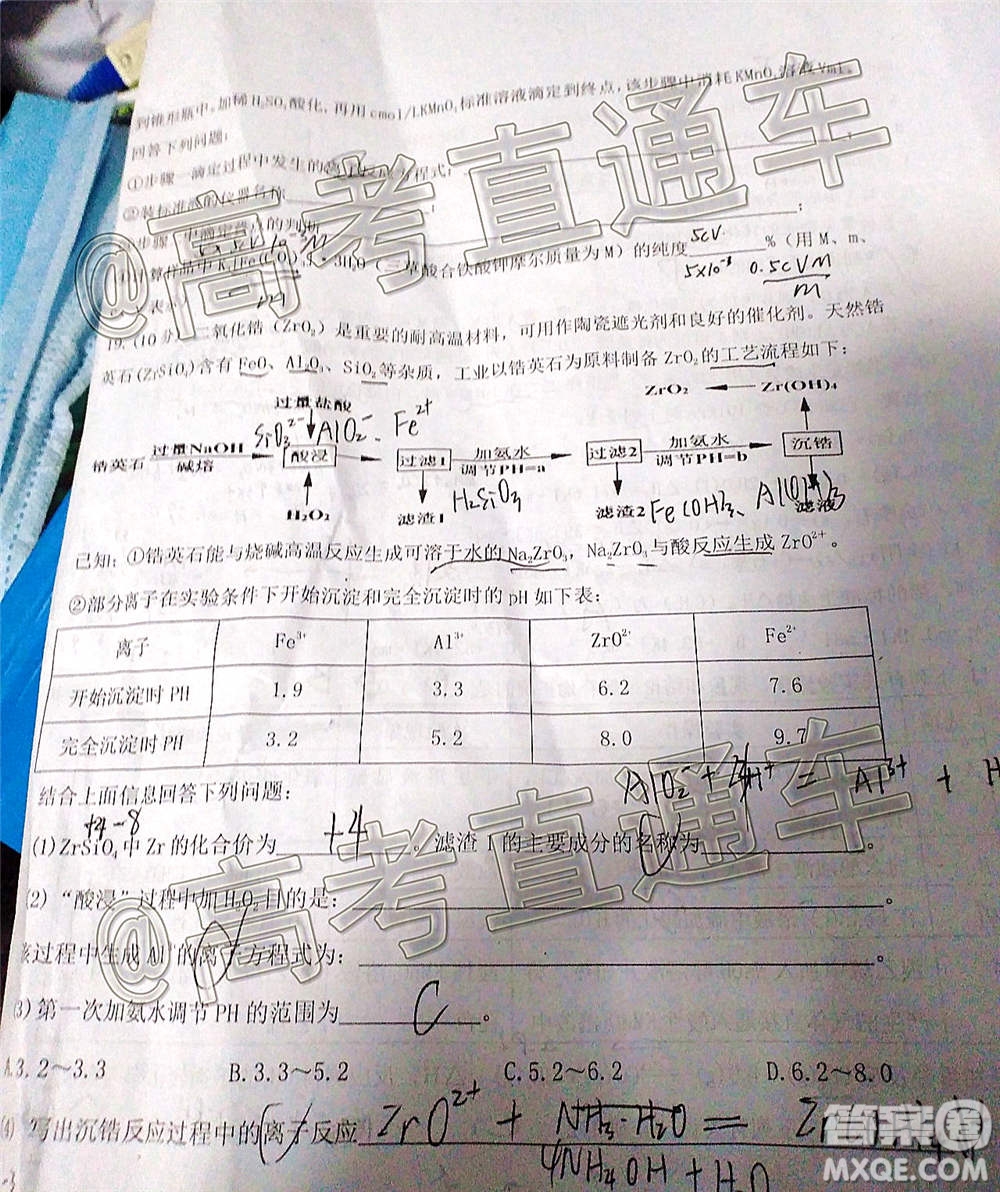 到锥形瓶中,加稀H₂SO₄酸化,再用cmol/LKMnO₄标准溶液滴定到终点,该步骤中消耗KMnO₄溶液Vml。
回答下列问题:
①步骤一滴定过程中发生的离子反应方程式:
②装标准液的仪器名称
中滴定终点的判断
5cV
样品中K₃[Fe(C₂O₄)₃]·3H₂O(三草酸合铁酸钾摩尔质量为M)的纯度 %(用M、m、
5×10⁻³
0.5cVM
m
19.(10分)二氧化锆(ZrO₂)是重要的耐高温材料,可用作陶瓷遮光剂和良好的催化剂。天然锆
英石(ZrSiO₄)含有FeO、Al₂O₃、SiO₂等杂质,工业以锆英石为原料制备ZrO₂的工艺流程如下:
过量盐酸
ZrO₂ Zr(OH)₄
SiO₃²⁻ AlO₂⁻ Fe²⁺
锆英石 过量NaOH 碱熔 酸浸 过滤1 加氨水 调节PH=a 过滤2 加氨水 调节PH=b 沉锆
H₂SiO₃
H₂O₂ 滤渣1 滤渣2 Fe(OH)₃、Al(OH)₃ 滤液
已知:①锆英石能与烧碱高温反应生成可溶于水的Na₂ZrO₃,Na₂ZrO₃与酸反应生成ZrO²⁺。
②部分离子在实验条件下开始沉淀和完全沉淀时的pH如下表:
离子 Fe³⁺ Al³⁺ ZrO²⁺ Fe²⁺
开始沉淀时PH 1.9 3.3 6.2 7.6
完全沉淀时PH 3.2 5.2 8.0 9.7
AlO₂⁻ + 4H⁺ = Al³⁺ + H
结合上面信息回答下列问题:
+4-8
(1)ZrSiO₄中Zr的化合价为 +4 。滤渣1的主要成分的名称为 。
(2)“酸浸”过程中加H₂O₂目的是: 。
该过程中生成Al³⁺的离子方程式为: 。
(3)第一次加氨水调节PH的范围为 C 。
A.3.2~3.3 B.3.3~5.2 C.5.2~6.2 D.6.2~8.0
(4)写出沉锆反应过程中的离子反应 ZrO²⁺ + NH₃·H₂O = Zr
4NH₄OH + H₂O
@高考直通车
@高考直通车
答案圈
MXQE.COM